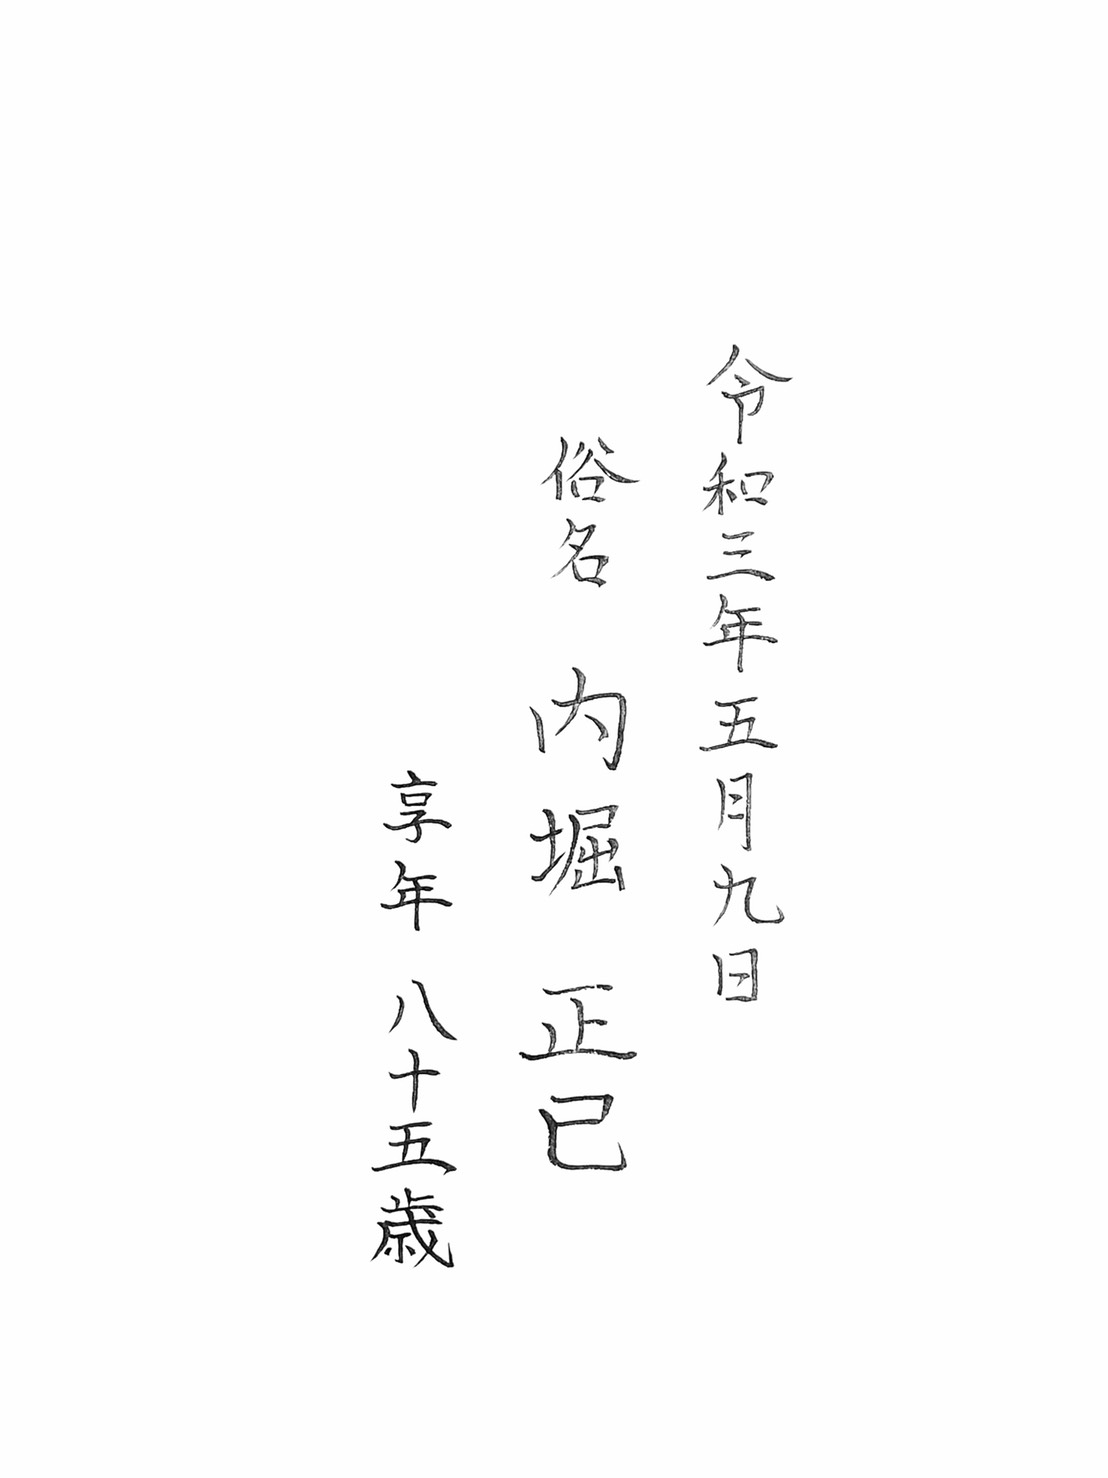 令和三年五月九日
俗名 内堀 正已
享年 八十五歳